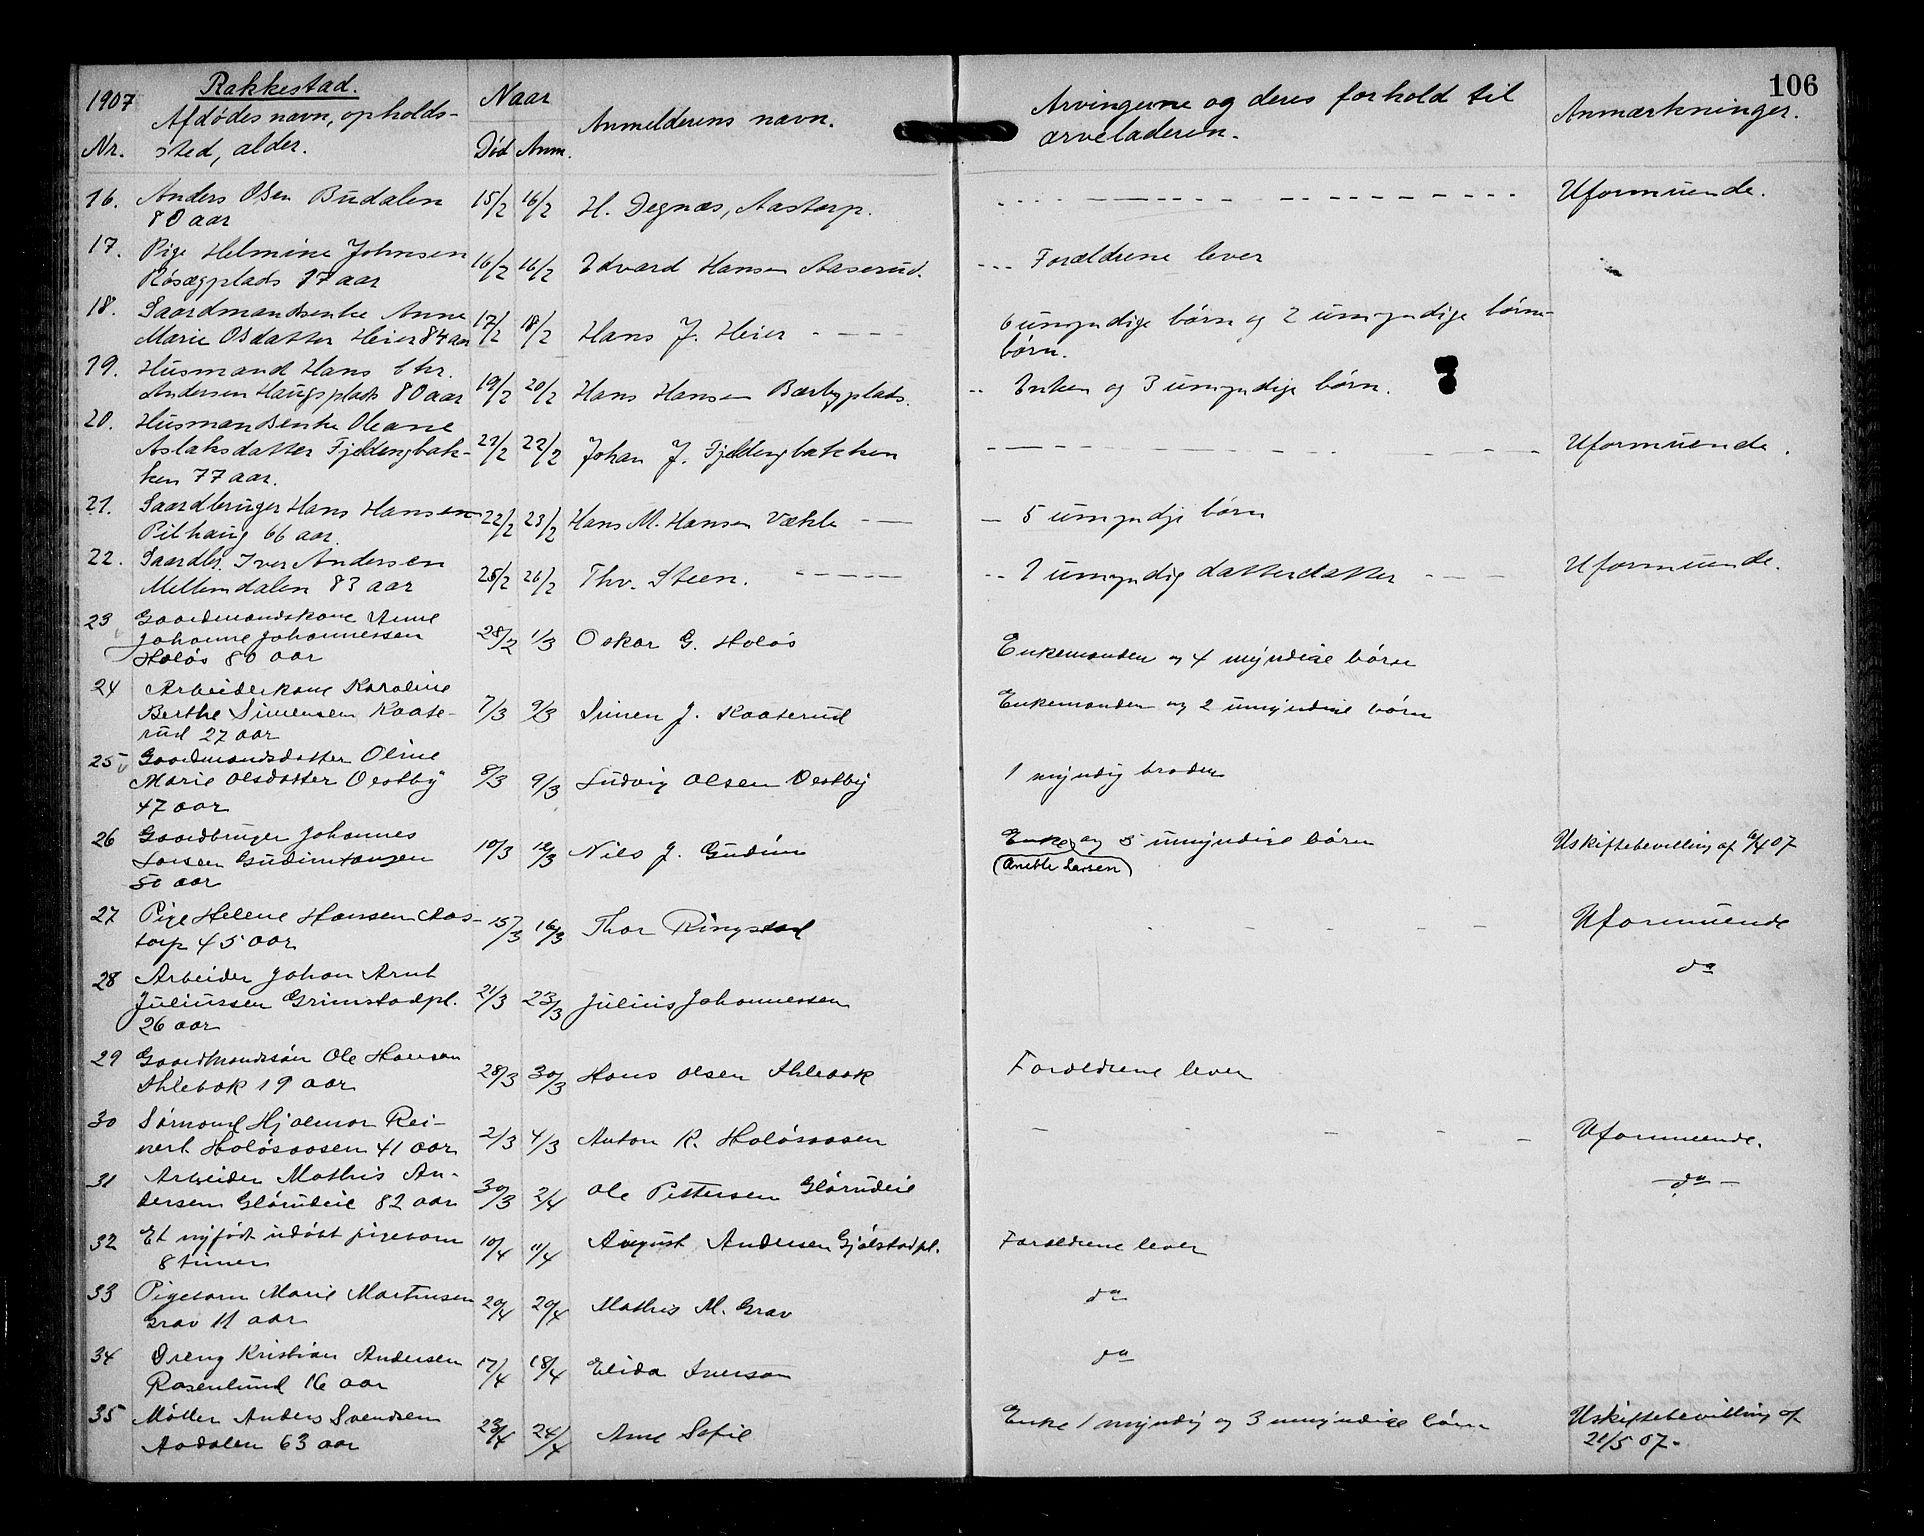 106
1907 Rakkestad. Naar
Afdødes navn, opholds- Anmelderens navn. Arvingerne og deres forhold til Anmærkninger.
Nr. sted, alder. Død Anm. arveladeren.
16. Anders Olsen Budalen 15/2 16/2 H. Degnæs, Aastorp. Uformuende.
80 aar
17. Pige Helmine Johnsen 16/2 16/2 Edvard Hansen Aaserud. Forældrene lever
Røsægplads 17 aar
18. Gaardmandsenke Anne 17/2 18/2 Hans J. Heier 6 umyndige børn og 2 umyndige børne-
Marie Olsdatter Heier 84 aar børn.
19. Husmand Hans Chr. 19/2 20/2 Hans Hansen Bærbyplads. Enken og 3 umyndige børn.
Andersen Haugsplads 80 aar
20. Husmandsenke Oleane
Aslaksdatter Fjeldengbak- 21/2 22/2 Johan J. Fjeldengbakken Uformuende.
ken 77 aar.
21. Gaardbruger Hans Hansen 22/2 23/2 Hans M. Hansen Vækle 5 umyndige børn
Pilhaug 66 aar.
22. Gaardbr. Iver Andersen 25/2 26/2 Thv. Steen. 1 umyndig datterdatter Uformuende.
Mellemdalen 83 aar
23 Gaardmandskone Anne
Johanne Johannessen 28/2 1/3 Oskar G. Holøs Enkemanden og 4 myndige børn
Holøs 80 aar
24 Arbeiderkone Karoline
Berthe Simensen Kaase- 7/3 9/3 Simen J. Kaaserud Enkemanden og 2 umyndige børn
rud 27 aar
25 Gaardmandsdatter Oline
Marie Olsdatter Østby 8/3 9/3 Ludvig Olsen Østby 1 myndig broder
47 aar
26 Gaardbruger Johannes
Larsen Gudimtangen 10/3 12/3 Nils J. Gudim Enke og 5 umyndige børn Uskiftebevilling af 6/4 07
50 aar (Anette Larsen)
27 Pige Helene Hansen Aas- 15/3 16/3 Thor Ringstad Uformuende
torp 45 aar
28 Arbeider Johan Arnt do
Juliussen Grimstadpl. 21/3 23/3 Julius Johannessen
26 aar
29 Gaardmandssøn Ole Hansen 28/3 30/3 Hans Olsen Shlebok Forældrene lever
Shlebok 19 aar
30 Sømand Hjalmar Rei-
nert Holøsaasen 41 aar 2/3 4/3 Anton R. Holøsaasen Uformuende.
31 Arbeider Mathis An- 30/3 2/4 Ole Pettersen Glørudeie - do -
dersen Glørudeie 82 aar
32 Et nyfødt udøbt pigebarn 10/4 11/4 August Andersen Gjølstadpl. Forældrene lever
8 timer
33 Pigebarn Marie Martinsen 20/4 20/4 Mathis M. Grav do
Grav 11 aar
34 Dreng Kristian Andersen 17/4 18/4 Elida Iverson do
Rosenlund 16 aar
35 Møller Anders Svendsen 23/4 24/4 Ane Sofie Enke 1 myndig og 3 umyndige børn Uskiftebevilling af
Aadalen 63 aar 21/5 07.